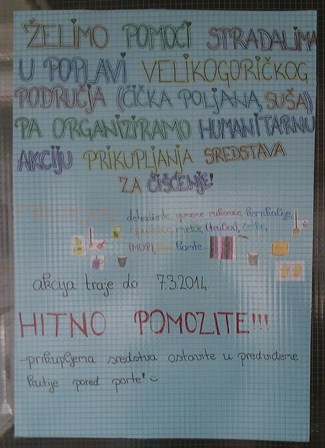 ŽELIMO POMOĆI STRADALIMA
U POPLAVI VELIKOGORIČKOG
PODRUČJA (ČIČKA POLJANA, SUŠA)
PA ORGANIZIRAMO HUMANITARNU
AKCIJU PRIKUPLJANJA SREDSTAVA
ZA ČIŠĆENJE!
gumene rukavice,
metle
akcija traje do 7.3.2014.
HITNO POMOZITE!!!
-prikupljena sredstva ostavite u predviđene
kutije pored porte!